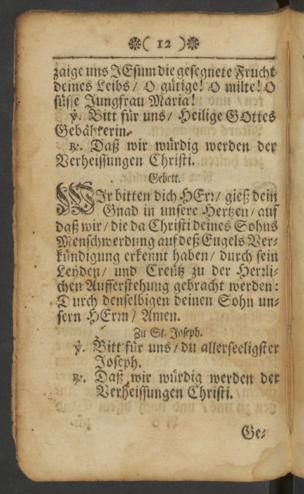 ❋( 12 )❋
zaige uns JEsum die gesegnete Frucht
deines Leibs / O gütige! O milte! O
süsse Jungfrau Maria!
℣. Bitt für uns / Heilige GOttes
Gebährerin.
℟. Daß wir würdig werden der
Verheissungen Christi.
Gebett.
WIr bitten dich HErr / gieß dein
Gnad in unsere Hertzen / auf
daß wir / die da Christi deines Sohns
Menschwerdung auf deß Engels Ver-
kündigung erkennt haben / durch sein
Leyden / und Creütz zu der Herrli-
chen Aufferstehung gebracht werden:
Durch denselbigen deinen Sohn un-
sern HErrn / Amen.
Zu St. Joseph.
℣. Bitt für uns / du allerseeligster
Joseph.
℟. Daß wir würdig werden der
Verheissungen Christi.
Ge-